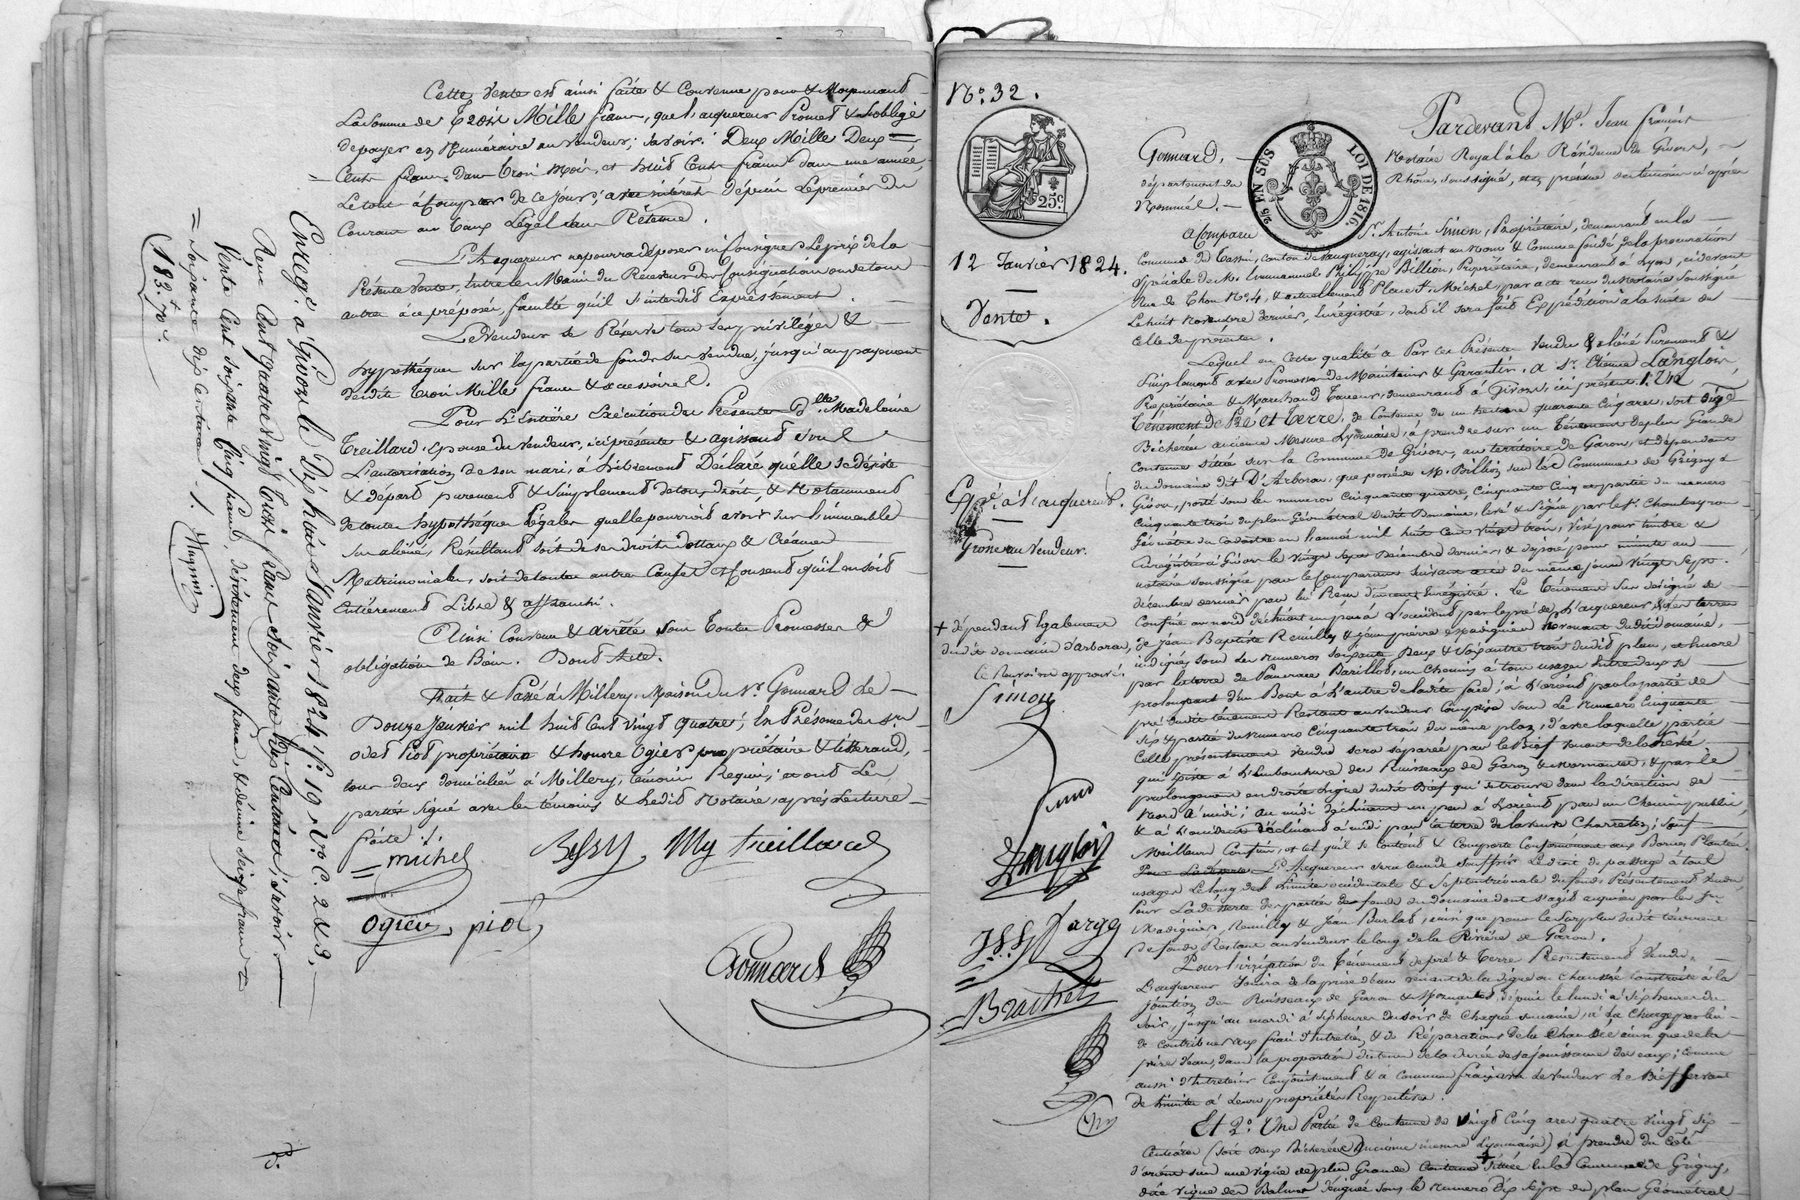 Cette Vente est ainsi faite & Convenue pour & Moyennant
La Somme de Trois Mille francs, que l'acquereur Promet & s'oblige
de payer en Numéraire au vendeur; savoir: Deux Mille Deux
Cents francs dans trois Mois, et huit Cents francs dans une année
Le tout à Compter de ce Jour, avec intérêts depuis Le premier du
Courant au Taux Légal sans Retenue.
L'Acquereur ne pourra déposer ni Consigner Le prix de la
Présente Vente, Entre les Mains du Receveur des Consignations ou de tous
autres à ce préposés, faculté qu'il s'interdit Expressément.
Le Vendeur se Réserve tous ses priviléges &
hypothéques sur la partie de fonds sus vendue, jusqu'au payement
desdits trois Mille francs & accessoires.
Pour L'Entière Exécution des Présentes Delle Madeleine
Treillard, Epouse du Vendeur, ici présente & agissant sous
L'autorisation de son mari, a librement Déclaré qu'elle se désiste
& départ purement & simplement de tous droits, & Notamment
de toutes hypothéques Légales quelle pourrait avoir sur l'immeuble
sus aliéné, Résultant soit de ses droits dotaux & Créances
Matrimoniales, soit de toutes autres Causes, & Consent qu'il en soit
Entièrement Libre & affranchi.
Ainsi Convenu & arrêté sous Toutes Promesses &
obligation de Biens. Dont Acte.
Fait & Passé à Millery, Maison du Sr Gonnard Le
Douze Janvier mil huit Cent Vingt quatre; En Présence des Srs
Piot propriétaire & honoré Ogier propriétaire & tisserand,
tous deux domiciliés à Millery, témoins Requis; et ont Les
parties signé avec les témoins & Ledit Notaire, après Lecture
faite.
michel Bessy My treillard
Ogier, piot
Gonnard
Enregé à Givors le Dix huit Janvier 1824, fo 19, Vo C. 2 & 3.
Reçu Cent quatre Vingt trois francs Soixante dix Centimes; Savoir
Vente Cent soixante Cinq francs, désistement deux francs, & décime seize francs
= soixante dix centimes.
(183.f 70.c
No. 32.
12 Janvier 1824.
Vente.
25c.
25c EN SUS LOI DE 1816.
Gonnard,
département du
Pardevant Me. Jean François
Notaire Royal à la Résidence de Givors,
Rhône, soussigné, et en présence des témoins ci après
nommés.
A Comparu Sr. Antoine Simon, Propriétaire, demeurant en la
Commune de Tassin, Canton de Vaugneray, agissant au Nom & Comme fondé de la procuration
Spéciale de Mr. Emmanuel Philippe Billion, Propriétaire, demeurant à Lyon, ci devant
Rue de Thou No. 4, & actuellement Place St. Michel, par acte reçu du Notaire Soussigné
Le huit Novembre dernier, Enregistré, dont il sera fait Expédition à la suite de
Celle des présentes.
Lequel en Cette qualité a Par Ces Présentes Vendu & aliéné Purement &
Simplement avec Promesse de Maintenir & Garantir. A Sr. Etienne Langlois,
Propriétaire & Marchand Tanneur, demeurant à Givors, ici présent. 1.° Un
Tenement de Pré et Terre, de Contenue de un hectare quarante Cinq ares, soit onze
Bicherées ancienne Mesure Lyonnaise, à prendre sur un Tenement de plus Grande
Contenue située sur la Commune de Givors, au territoire de Garon, et dépendant
du domaine dit D'Arboras, que possède Mr. Billion, sur les Communes de Grigny &
Givors, porté sous les numéros Cinquante quatre, Cinquante Cinq et partie du numéro
Cinquante trois du plan Géométral dudit Domaine, levé & Signé par le Sr. Chanteyron
Géomètre du Cadastre en l'année mil huit Cent vingt trois, Visé pour timbre &
Enregistré à Givors le Vingt Sept Décembre dernier, & déposé pour minute au
notaire soussigné par le Comparant suivant acte du même jour Vingt Sept
décembre dernier par lui Reçu dûment Enregistré. Le Tenement Sus désigné se
Confine au nord déclinant un peu à L'occident par le pré de L'acquereur & les terres
de Jean Baptiste Remilly & Jean pierre provenant dudit domaine,
indiquées sous les numéros soixante Deux & Soixante trois dudit plan, & encore
par la terre de Pancrace Barillot, un Chemin à tous usages Entre deux se
prolongeant d'un Bout à L'autre de ladite face; à L'orient par la partie de
pré dudit tenement Restant au vendeur Comprise sous Le Numéro Cinquante
Six & partie du numéro Cinquante trois du même plan, d'avec laquelle partie
Celle présentement vendue sera séparée par le Bief venant de la
qui existe à L'Embouchure des Ruisseaux de Garon & Mornantet, & par le
prolongement en droite Ligne dudit Bief qui se trouve dans la direction de
Nord à midi; au midi déclinant un peu à L'orient par un Chemin public,
& à L'occident déclinant à midi par la terre de la veuve Charretier; sauf
Meilleurs Confins, et tel qu'il se Contient & Comporte Conformément aux Bornes Plantées.
L'Acquereur sera tenu de Souffrir Le droit de passage à tous
usages Le long des limites occidentale & Septentrionale du fonds Présentement Vendu,
Pour La desserte des parties des fonds du domaine dont s'agit acquises par les Srs
Remilly & Jean Burlat, ainsi que pour le Surplus dudit tenement
de fonds Restant au vendeur le long de la Rivière de Garon.
Pour L'irrigation du Tenement de pré & Terre Présentement Vendu,
L'acquereur Jouira de la prise d'eau venant de la digue ou Chaussée Construite à la
jonction des Ruisseaux de Garon & Mornantet, depuis le lundi à six heures du
soir, jusqu'au mardi à six heures du soir de Chaque semaine, à la Charge par lui
de Contribuer aux frais d'Entretien & de Réparations de la Chaussée ainsi que de la
prise d'eau, dans la proportion du tems de la durée de sa jouissance des eaux; Comme
aussi d'Entretenir Conjointement & à Communs frais avec le vendeur Le Bief servant
de limites à Leurs propriétés Respectives.
Et 2.° Une Partie de Contenue de Vingt Cinq ares quatre Vingt Six
Centiares (soit deux Bicherées ancienne mesure Lyonnaise) à prendre du Coté
d'orient sur une vigne de plus Grande Contenue + située en la Commune de Grigny,
dite vigne des Balmes désignée sous le numéro dix sept du plan Géométral
Exé. à l'acquereur.
Grosse au Vendeur.
+ dépendant Egalement
dudit domaine d'arboras,
Ce Renvoi est approuvé.
Simon
Simon
Langlois
Farge
Brachet